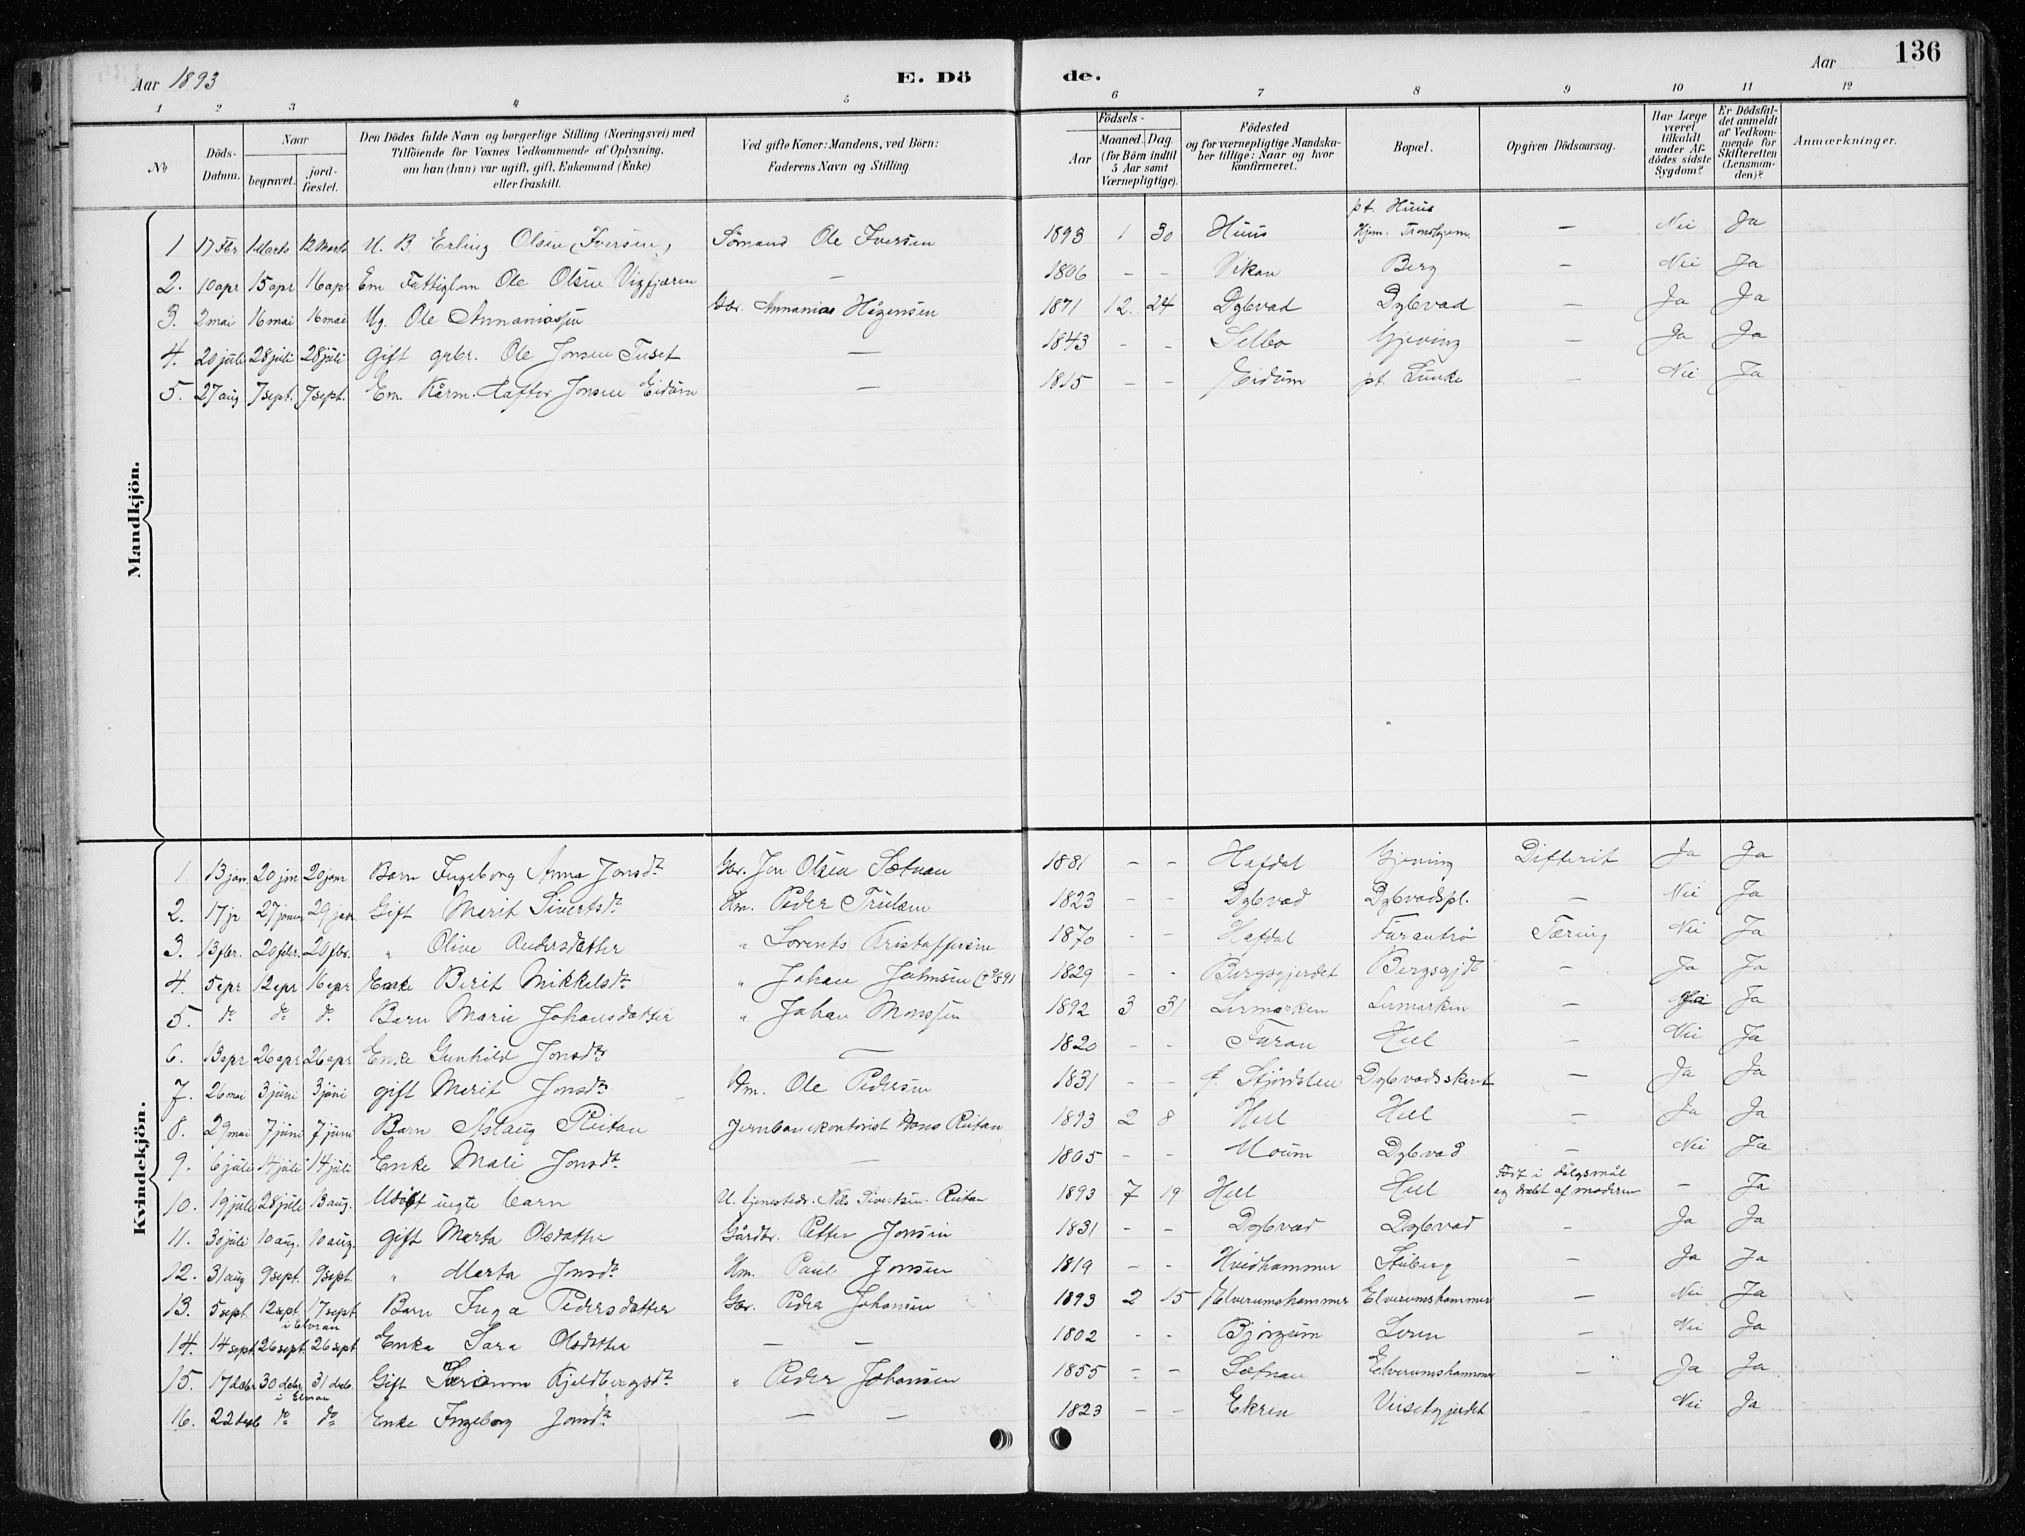 Aar 1893 E. Dö de. Aar 136
1 2 3 4 5 6 7 8 9 10 11 12
No Döds-Datum. Naar begravet. jord-fæstet. Den Dödes fulde Navn og borgerlige Stilling (Næringsvei) med Tilföiende for Voxnes Vedkommende af Oplysning, om han (hun) var ugift, gift, Enkemand (Enke) eller fraskilt. Ved gifte Koner: Mandens, ved Börn: Faderens Navn og Stilling. Födsels- Aar Maaned. Dag. (for Börn indtil 5 Aar samt Værnepligtige). Födested og for værnepligtige Mandskaber tillige: Naar og hvor konfirmeret. Bopæl. Opgiven Dödsaarsag. Har Læge været tilkaldt under Afdödes sidste Sygdom? Er Dödsfaldet anmeldt af Vedkommende for Skifteretten (Lensmanden)? Anmærkninger.
Mandkjön.
1 17 Fbr 1 Marts 12 Marts U. B. Erling Olsen (Iversen) Sömand Ole Iversen 1893 1 30 Huus pt. Huus Hjem. Trondhjem — Nei Ja
2. 10 apr 15 apr 16 apr Em Fattiglem Ole Olsen — 1806 - - Vikan Berg — Nei Ja
3. 2 mai 16 mai 16 mai Ug. Ole Annaniassen Gbr. Annanias Hågensen 1871 12. 24 Dybvad Dybvad — Ja Ja
4. 20 juli 28 juli 28 juli gift grbr. Ole Jonsen Tuset — 1843 - - Selbo Gjeving — Ja Ja
5. 27 aug 7 sept. 7 sept. Em. Kårm. Haftor Jonsen Eidum — 1815 - - Eidum pt. Lunke — Nei Ja
Kvindekjön.
1. 13 jan 20 jan 20 janr Barn Ingeborg Anna Jonsdr Gbr. Jon Olsen Sætnan 1881 - - Hafdal Gjeving Difterit Ja Ja
2. 17 jr 27 janr 29 jan Gift Marit Sivertsdr Hm. Peder Trulsen 1823 - - Dybvad Dybvadspl. — Nei Ja
3. 13 fbr. 20 febr. 20 fbr. " Olive Andersdatter " Lorents Kristoffersen 1870 - - Hafdal Tæring Nei Ja
4. 5 apr 12 apr 16 apr Enke Berit Mikkelsdr " Johan Johnsen 1829 - - Bergsgjerdet Bergsgjdt — Ja Ja
5. do do do Barn Marie Johansdatter " Johan Monssen 1892 3 31 Lermarken Lermarken — Ja
6. 13 apr 26 apr 26 apr Enke Gunhild Jonsdr — 1820 - - Faran Hell — Nei Ja
7. 26 mai 3 juni 3 juni gift Marit Jonsdr Hm. Ole Pedersen 1831 - - f. Stjördalen — Ja Ja
8. 29 mai 7 juni 7 juni Barn Aslaug Reitan Jernbanekontorist Hans Reitan 1893 2 8 Hell Hell — Ja Ja
9. 6 juli 14 juli 14 juli Enke Mali Jonsdr. — 1805 - - Moum Dybvad — Nei Ja
10. 19 juli 28 juli 13 aug. Udöbt uegte barn U. tjenestedr. Nils Sivertsen Reitan 1893 7 19 Hell Hell Födt i dölgsmål og dræbt af moderen — Ja
11. 30 juli 10 aug. 10 aug. gift Marta Olsdatter Gårdbr. Petter Jonsen 1831 - - Dybvad Dybvad — Ja Ja
12. 31 aug 9 sept. 9 sept. " Marta Jonsdr Hm. Paul Jonsen 1819 - - Hvidhammer Stuberg — Ja Ja
13. 5 sept. 12 sept 17 sept. i Elvran Barn Inga Pedersdatter Gbr. Peder Johansen 1893 2 15 Elverumshammer Elverumshammer — Nei Ja
14. 14 sept. 26 sept. 26 sept Enke Sara Olsdatter — — 1802 - - Bjørgum Leren — Nei Ja
15. 17 decbr 30 decbr 31 decb i Elvran Gift Kjeldbergsdr " Peder Johansen 1855 - - Sætnan Elverumshammer — Ja Ja
16. 22 decb do do Enke Ingeborg Jonsdr — — 1823 - - Ekren — Nei Ja